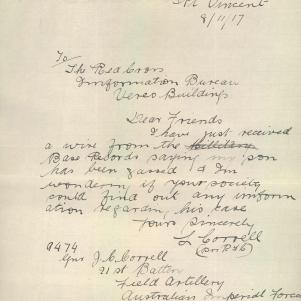 Pt Vincent
8/11/17
To
The Red Cross
Imformation Bureau
Verco Buildings
Dear Friends
I have just received
a wire from the Millitary
Base Records saying my son
has been gassed & Im
wondering if your society
could find out any imform
ation regarding his case
Yours Sincerely
L Correll
9474
Gnr J. C. Correll
21st Battery
Field Artillery
Australian Imperial Force